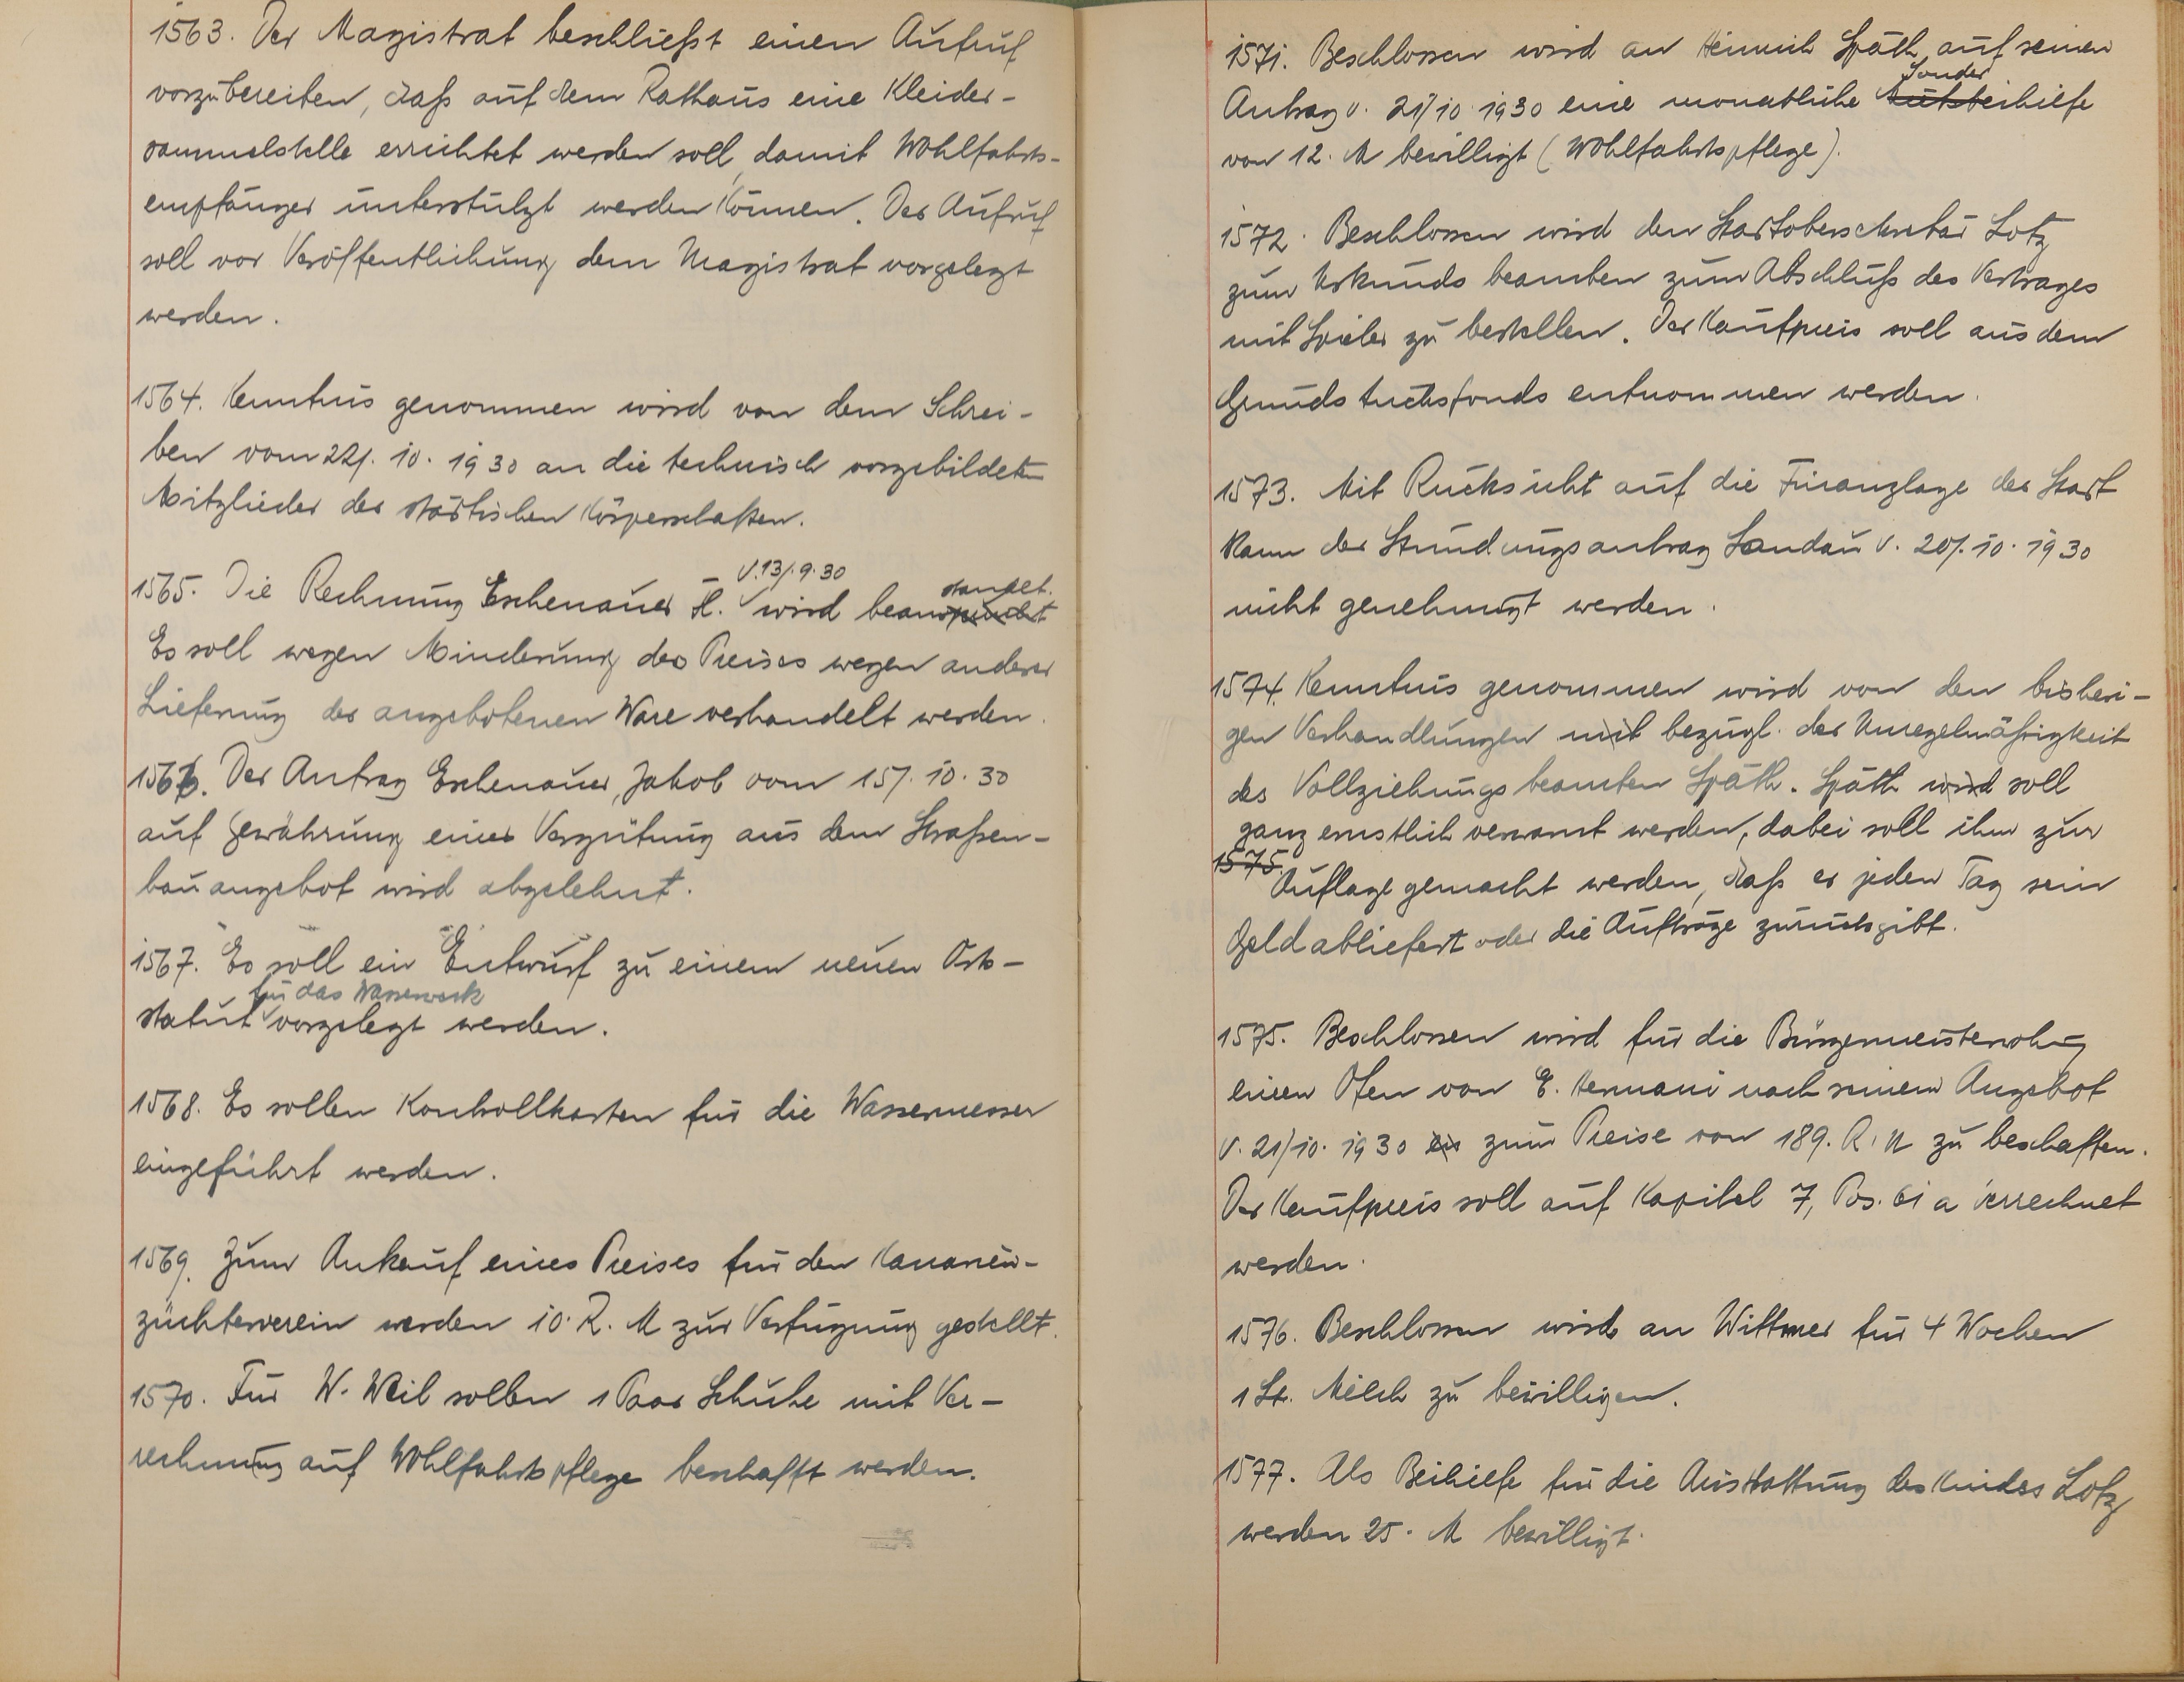 1563. Der Magistrat beschließt einen Aufruf
vorzubereiten, daß auf dem Rathaus eine Kleider-
sammelstelle errichtet werden soll, damit Wohlfahrts-
empfänger unterstützt werden können. Der Aufruf
soll vor Veröffentlichung dem Magistrat vorgelegt
werden.
1564. Kenntnis genommen wird von dem Schrei-
ben vom 22/. 10. 1930 an die technisch vorgebildeten
Mitglieder der städtischen Körperschaften.
v. 13/. 9. 30 standet.
1565. Die Rechnung Eschenauer H. wird beansprucht
Es soll wegen Minderung des Preises wegen anderer
Lieferung der angebotenen Ware verhandelt werden.
1566. Der Antrag Eschenauer, Jakob vom 15/. 10. 30
auf Gewährung einer Vergütung aus dem Straßen-
bauangebot wird abgelehnt.
1567. Es soll ein Entwurf zu einem neuen Orts-
für das Wasserwerk
statut vorgelegt werden.
1568. Es sollen Kontrollkarten für die Wassermesser
eingeführt werden.
1569. Zum Ankauf eines Preises für den Kanarien-
züchterverein werden 10. R. M zur Verfügung gestellt.
1570. Für W. Weil sollen 1 Paar Schuhe mit Ver-
rechnung auf Wohlfahrtspflege beschafft werden.
1571. Beschlossen wird an Heinrich Späth auf seinen
Sonder
Antrag v. 21/10 1930 eine monatliche beihilfe
von 12. M bewilligt (Wohlfahrtspflege).
1572. Beschlossen wird den Stadtobersekretär Lotz
zum Urkundsbeamten zum Abschluß des Vertrages
mit Spieler zu bestellen. Der Kaufpreis soll aus dem
Grundstücksfonds entnommen werden.
1573. Mit Rücksicht auf die Finanzlage der Stadt
kann der Stundungsantrag Landau v. 20/. 10. 1930
nicht genehmigt werden.
1574. Kenntnis genommen wird von den bisheri-
gen Verhandlungen mit bezügl. der Unregelmäßigkeit
des Vollziehungsbeamten Späth. Späth wird soll
ganz ernstlich verwarnt werden, dabei soll ihm zur
1575.
Auflage gemacht werden, daß er jeden Tag sein
Geld abliefert oder die Aufträge zurückgibt.
1575. Beschlossen wird für die Bürgermeisterwohng
einen Ofen von E. Hermani nach seinem Angebot
v. 21/10. 1930 ein zum Preise von 189. R. M zu beschaffen.
Der Kaufpreis soll auf Kapitel 7, Pos. 61 a verrechnet
werden.
1576. Beschlossen wird an Wittmer für 4 Wochen
1 Lt. Milch zu bewilligen.
1577. Als Beihilfe für die Ausstattung des Kindes Lotz
werden 25. M bewilligt.